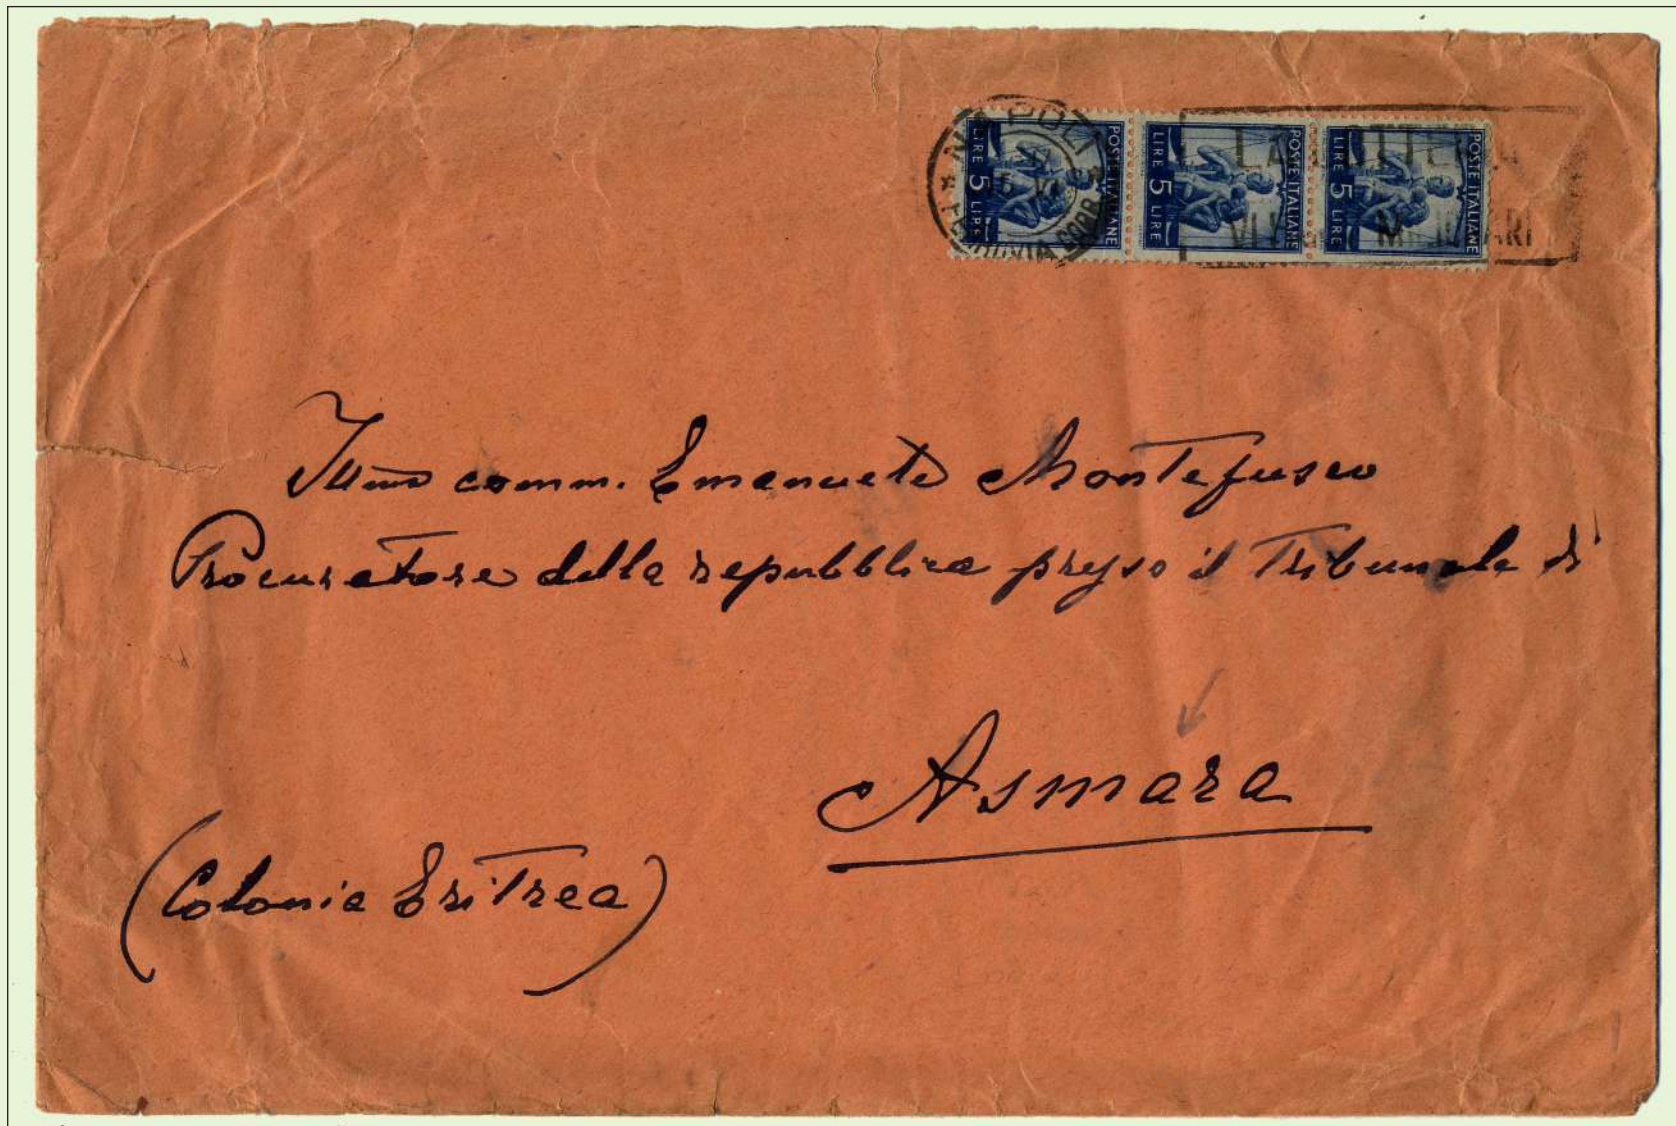 NAPOLI
FERROVIA CORR.
POSTE ITALIANE
LIRE 5 LIRE
POSTE ITALIANE
LIRE 5 LIRE
POSTE ITALIANE
LIRE 5 LIRE
LA
MILITARI
Illmo comm. Emanuele Montefusco
Procuratore della repubblica presso il Tribunale di
Asmara
(Colonia Eritrea)